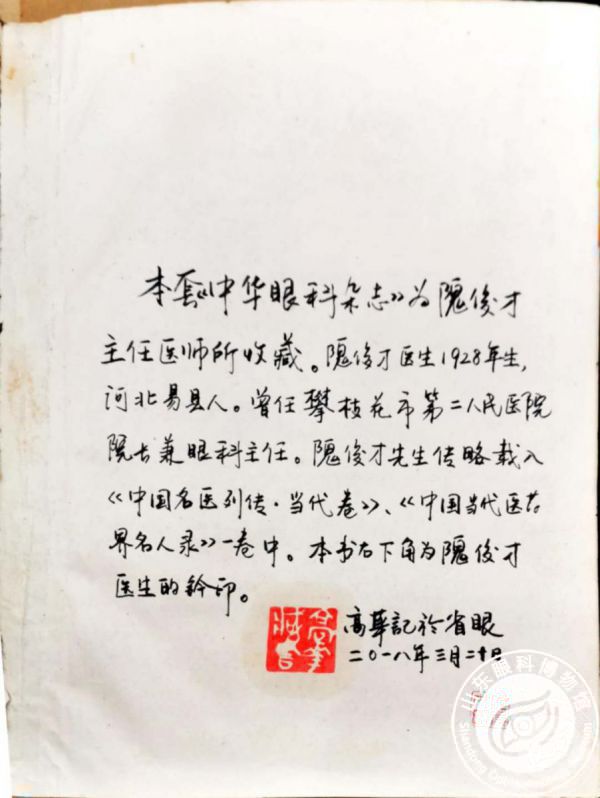 本套《中华眼科杂志》为隗俊才
主任医师所收藏。隗俊才医生1928年生，
河北易县人。曾任攀枝花市第二人民医院
院长兼眼科主任。隗俊才先生传略载入
《中国名医列传·当代卷》、《中国当代医药
界名人录》一卷中。本书右下角为隗俊才
医生的钤印。
高華記於省眼
二〇一八年三月二十日
高華藏書
山东眼科博物馆